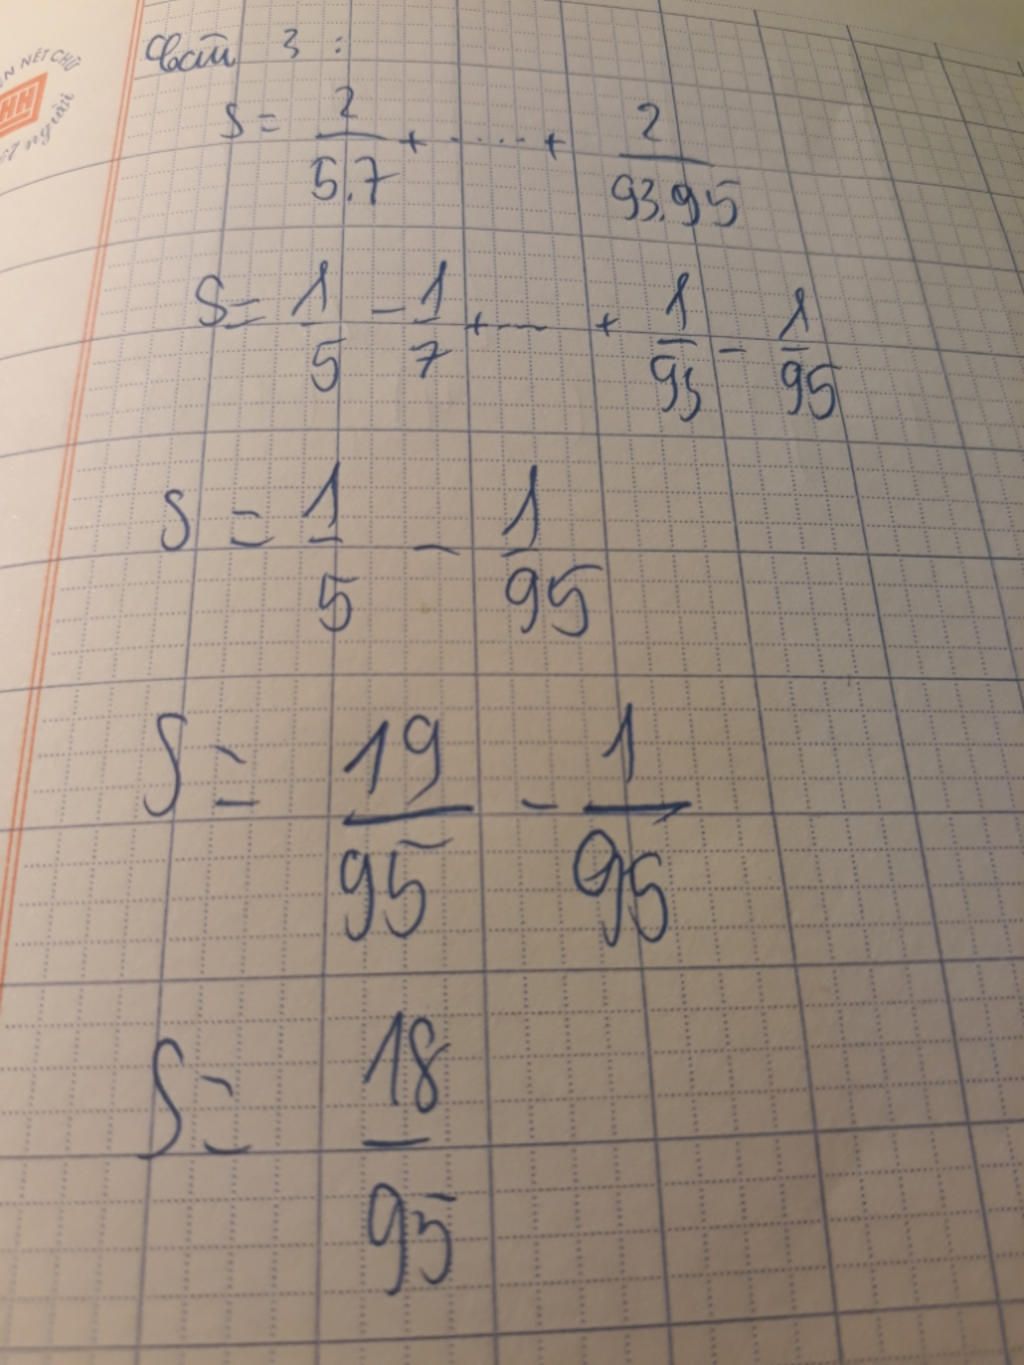 N NÉT CHỮ
HH
ết người
Câu 3 :
S = 2/5.7 + ..... + 2/93.95
S = 1/5 - 1/7 + ---- + 1/93 - 1/95
S = 1/5 - 1/95
S = 19/95 - 1/95
S = 18/95